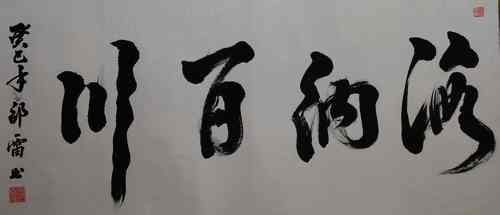 海纳百川
癸巳年邵雷书